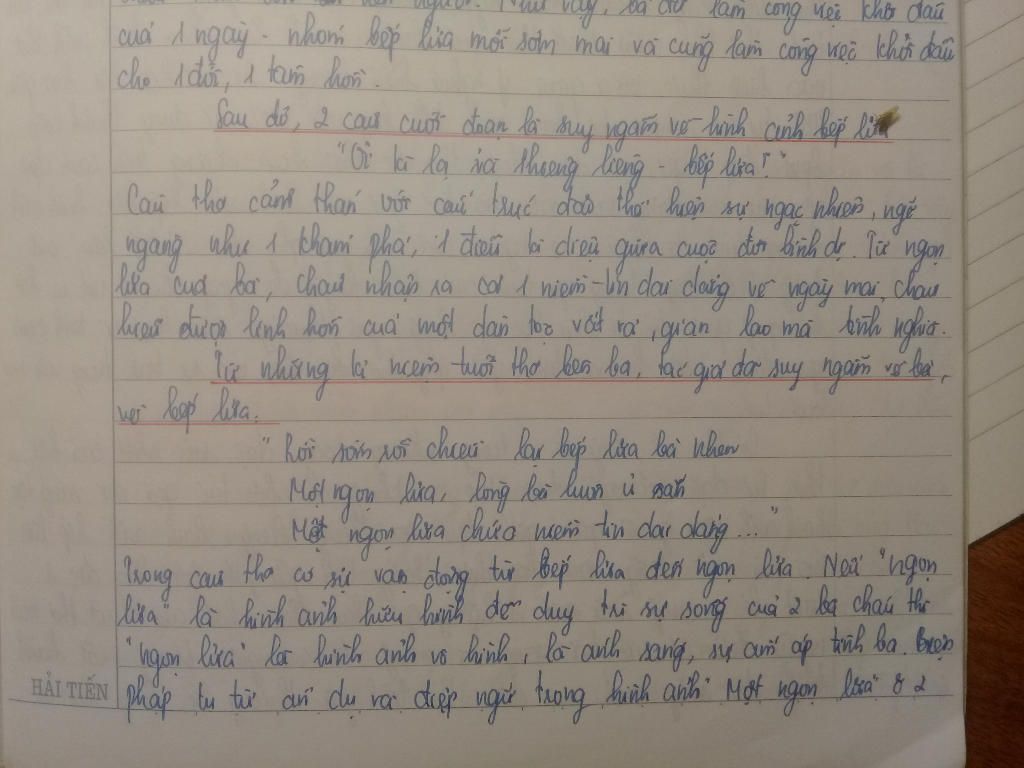 của 1 ngày - nhóm bếp lửa mỗi sớm mai và cũng làm công việc khởi đầu
cho 1 đời, 1 tâm hồn.
Sau đó, 2 câu cuối đoạn là suy ngẫm về hình ảnh bếp lửa
"Ôi kì lạ và thiêng liêng - bếp lửa!"
Câu thơ cảm thán với cấu trúc đảo thể hiện sự ngạc nhiên, ngỡ
ngàng như 1 khám phá, 1 điều kì diệu giữa cuộc đời bình dị. Từ ngọn
lửa của bà, cháu nhận ra cả 1 niềm tin dai dẳng về ngày mai, cháu
hiểu được linh hồn của một dân tộc vất vả, gian lao mà tình nghĩa.
Từ những kỉ niệm tuổi thơ bên bà, tác giả đã suy ngẫm về bà,
về bếp lửa.
"Rồi sớm rồi chiều lại bếp lửa bà nhen
Một ngọn lửa, lòng bà luôn ủ sẵn
Một ngọn lửa chứa niềm tin dai dẳng..."
Trong câu thơ có sự vận động từ bếp lửa đến ngọn lửa. Nếu "ngọn
lửa" là hình ảnh hữu hình để duy trì sự sống của 2 bà cháu thì
"ngọn lửa" là hình ảnh vô hình, là ánh sáng, sự ấm áp tình bà. Biện
pháp tu từ ẩn dụ và điệp ngữ trong hình ảnh "Một ngọn lửa" ở 2
HẢI TIẾN